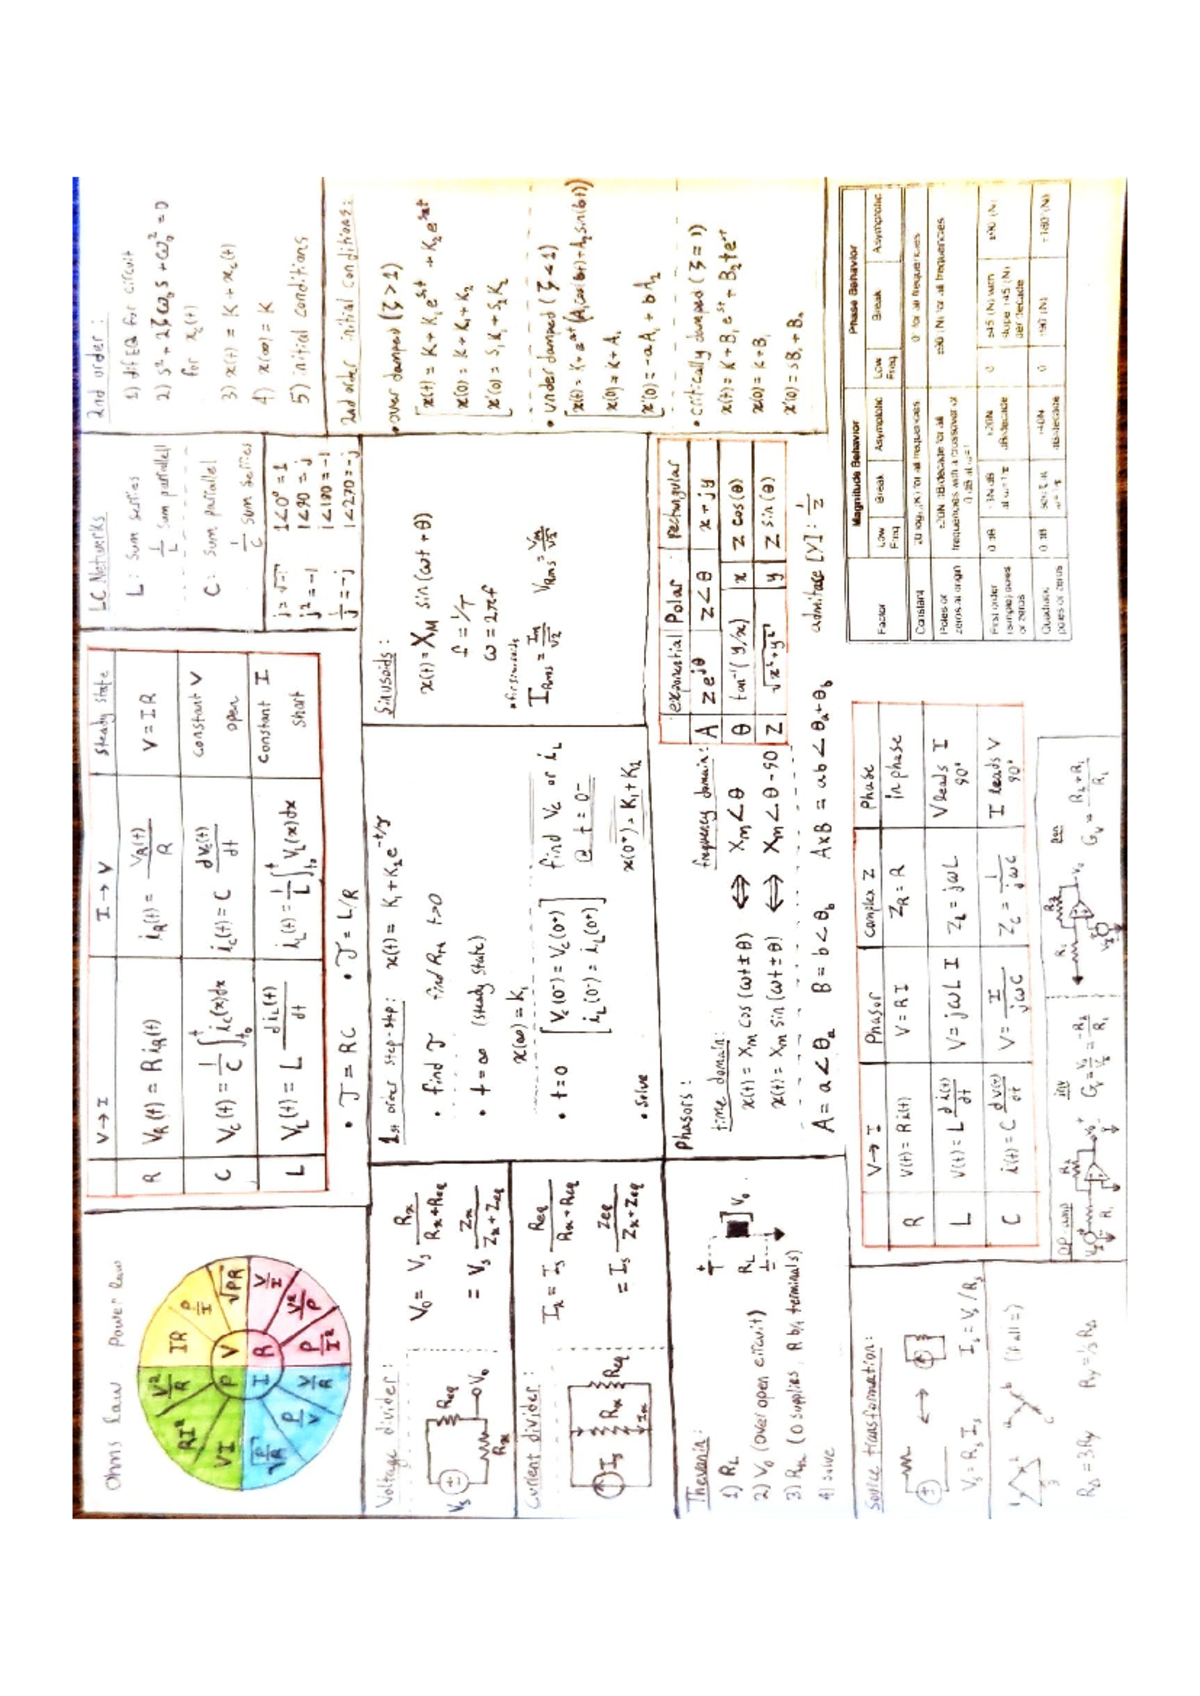 Ohms Law Power Law
P V I R
VI RI² V²/R
IR P/I √PR
V/I V²/P P/I²
V/R P/V √P/R
V→I I→V Steady State
R V_R(t) = R i_R(t) i_R(t) = V_R(t)/R V = IR
C V_C(t) = 1/C ∫ᵗ_t₀ i_C(x)dx i_C(t) = C dV_C(t)/dt constant V open
L V_L(t) = L di_L(t)/dt i_L(t) = 1/L ∫ᵗ_t₀ V_L(x)dx constant I short
• 𝒯 = RC • 𝒯 = L/R
LC Networks
L: Sum series
1/L sum parallel
C: sum parallel
1/C sum series
j = √-1 1∠0° = 1
j² = -1 1∠90 = j
1∠180 = -1
1/j = -j 1∠270 = -j
2nd order:
1) dif EQ for circuit
2) s² + 2ζω₀s + ω₀² = 0
for x_c(t)
3) x(t) = K + x_c(t)
4) x(∞) = K
5) initial conditions
2nd order initial conditions:
• over damped (ζ > 1)
x(t) = K + K₁e^s₁t + K₂e^s₂t
x(0) = K + K₁ + K₂
x'(0) = S₁K₁ + S₂K₂
• under damped (ζ < 1)
x(t) = K + e^-at (A₁cos(bt) + A₂sin(bt))
x(0) = K + A₁
x'(0) = -aA₁ + bA₂
• critically damped (ζ = 1)
x(t) = K + B₁e^st + B₂te^st
x(0) = K + B₁
x'(0) = SB₁ + B₂
Voltage divider:
Vs Req Rx Vo
Vo = Vs Rx/(Rx+Req)
= Vs Zx/(Zx+Zeq)
Current divider:
Is Rx Req Ix
Ix = Is Req/(Rx+Req)
= Is Zeq/(Zx+Zeq)
1st order step-step: x(t) = K₁ + K₂e^-t/𝒯
• find 𝒯 find Rth t>0
• t = ∞ (steady state)
x(∞) = K₁
• t = 0 Vc(0⁻) = Vc(0⁺) find Vc or iL
iL(0⁻) = iL(0⁺) @ t = 0⁻
x(0⁺) = K₁ + K₂
• solve
Sinusoids:
x(t) = X_M sin(ωt + θ)
f = 1/T
ω = 2πf
I_RMS = Im/√2 V_RMS = Vm/√2
Thevanin:
1) RL
2) Vo (over open circuit)
3) Rth (0 supplies, R b/t terminals)
4) solve
RL Vo
Phasors:
time domain: frequency domain:
x(t) = X_M cos(ωt ± θ) ⇔ X_M ∠ θ
x(t) = X_M sin(ωt ± θ) ⇔ X_M ∠ θ - 90
A = a ∠ θa B = b ∠ θb AxB = ab ∠ θa + θb
exponential Polar rectangular
A Ze^jθ Z∠θ x + jy
θ tan⁻¹(y/x) x Z cos(θ)
Z √x²+y² y Z sin(θ)
admitace [Y]: 1/Z
Source transformation:
Vs = Rs Is Is = Vs/Rs
R△ = 3Ry Ry = ⅓R△
V→I Phasor Complex Z Phase
R V(t) = R i(t) V = RI Z_R = R in phase
L V(t) = L di(t)/dt V = jωL I Z_L = jωL V leads I 90°
C i(t) = C dv(t)/dt V = I/jωC Z_C = 1/jωC I leads V 90°
OP-amp inv Gv = Vo/Vs = -R₂/R₁
non Gv = R₂+R₁/R₁
Magnitude Behavior Phase Behavior
Factor Low Freq Break Asymptotic Low Freq Break Asymptotic
Constant 20 log₁₀(K) for all frequencies 0° for all frequencies
Poles or zeros at origin ±20N dB/decade for all frequencies with a crossover of 0 dB at ω=1 ±90 (N) for all frequencies
First order (simple) poles or zeros 0 dB ±3N dB at ω= ±20N dB/decade 0 ±45 (N) with slope ±45 (N) per decade ±90 (N)
Quadratic poles or zeros 0 dB ±40N dB/decade 0 ±90 (N) ±180 (N)